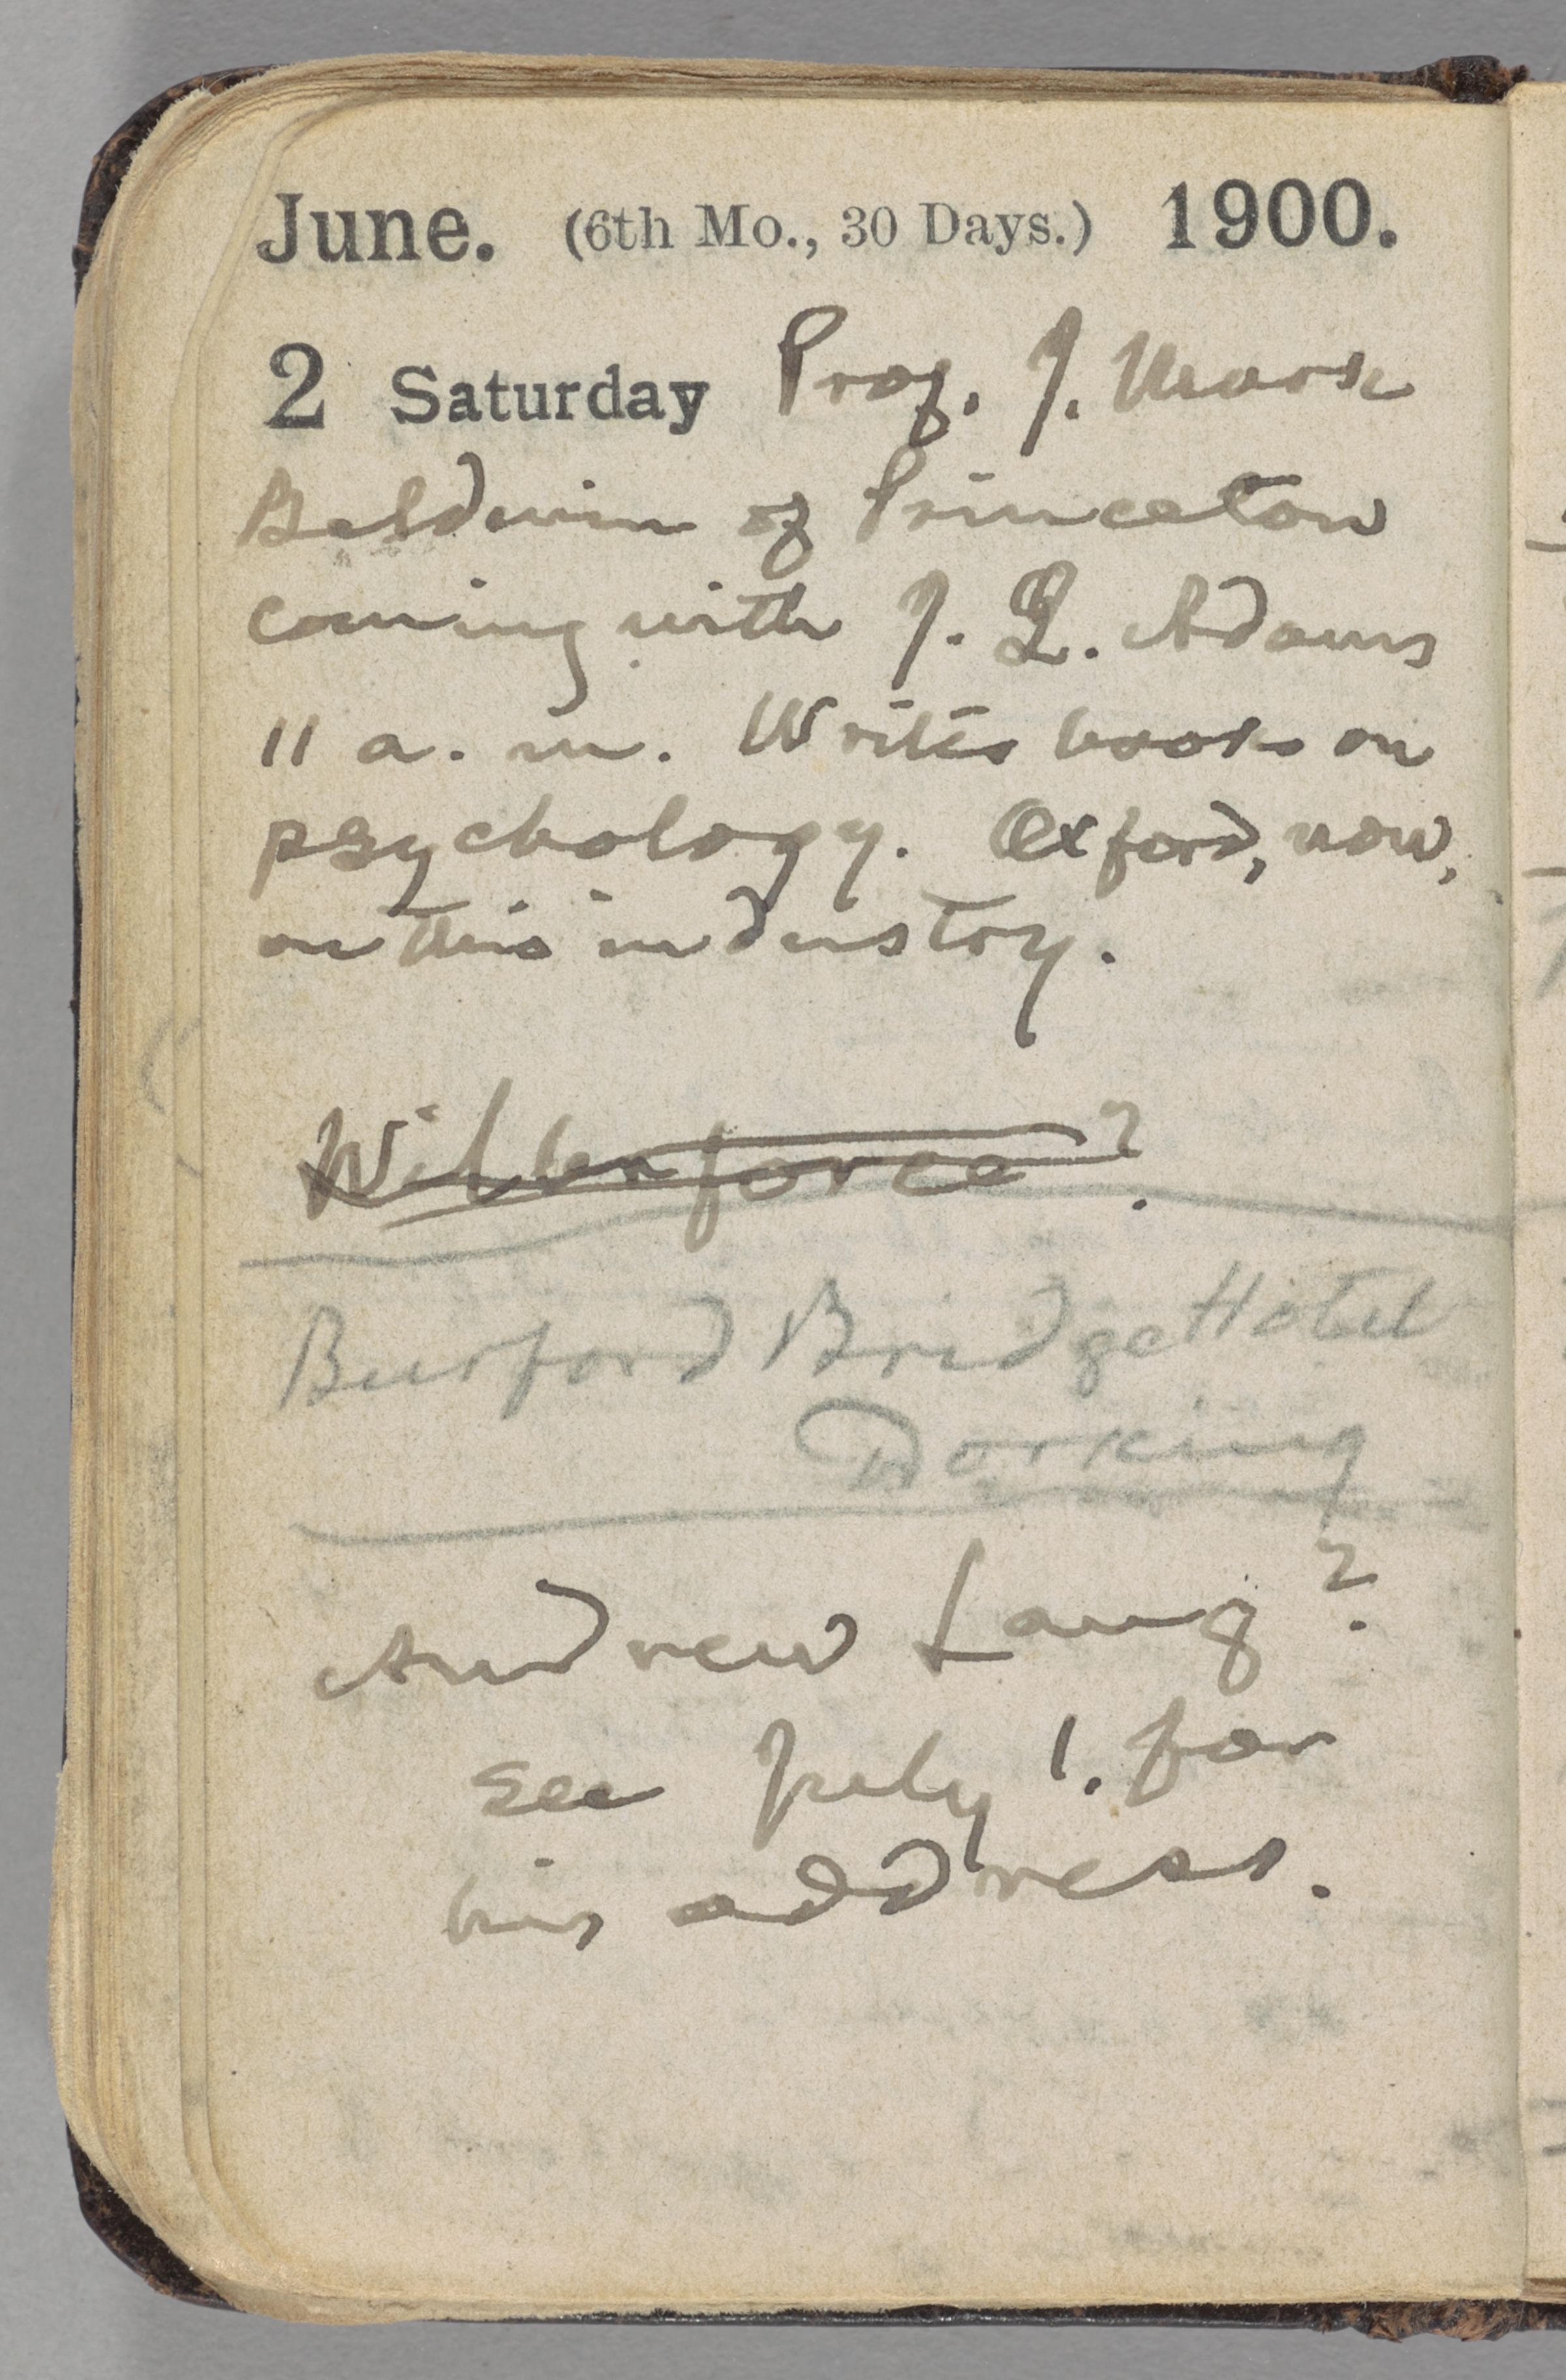 June. (6th Mo., 30 Days.) 1900.
2 Saturday Prof. J. Mark
Baldwin of Princeton
coming with J. Q. Adams
11 a. m. Writes books on
psychology. Oxford, now,
on this industry.
Wilberforce?
Burford Bridge Hotel
Dorking
Andrew Lang?
see July 1. for
his address.